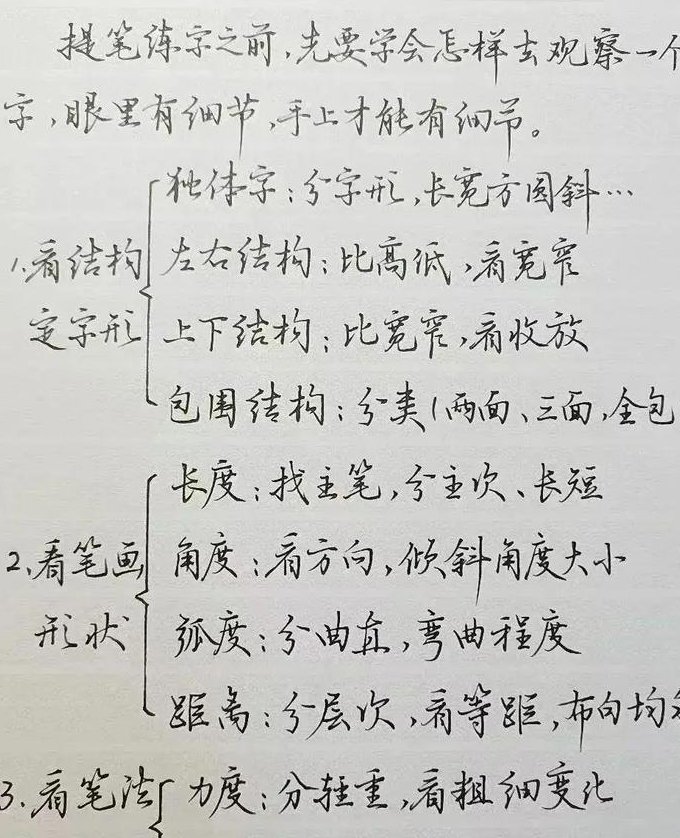 提笔练字之前,先要学会怎样去观察一个
字,眼里有细节,手上才能有细节。
独体字:分字形,长宽方圆斜…
1.看结构
左右结构:比高低,看宽窄
定字形
上下结构:比宽窄,看收放
包围结构:分类(两面、三面,全包
长度:找主笔,分主次、长短
2.看笔画
角度:看方向,倾斜角度大小
形状
弧度:分曲直,弯曲程度
距离:分层次,看等距,布白均
3.看笔法
力度:分轻重,看粗细变化